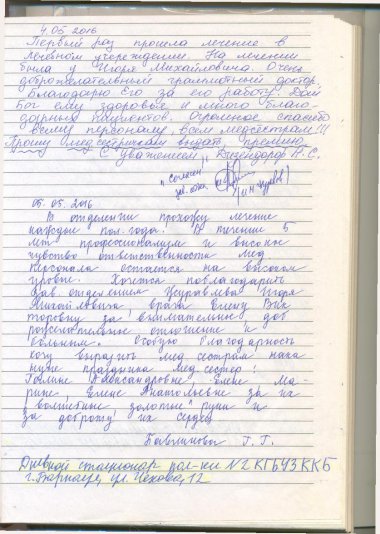 4.05 2016
Первый раз прошла лечение в
лечебном учереждении. На лечении
была у Игоря Михайловича. Очень
доброжелательный грамотный доктор.
Благодарю Его за его работу. Дай
Бог ему здоровье и много благо-
дарных пациентов. Огромное спасибо
всему персоналу, всем медсестрам!!!
Прошу медсестричкам выдать премию
С уважением, А.С.
"согласен"
зав. отд.
05.05.2016
В отделении прохожу лечение
каждые пол. года. В течении 5
лет профессионализм и высокое
чувство ответственности мед
персонала остается на высоком
уровне. Хочется поблагодарить
Зав. отделением Журавлева Игоря
Михайловича, врача Елену Вик
торовну за внимательное, доб
рожелательное отношение к
больным. Особую благодарность
хочу выразить мед. сестрам нака
нуне праздника мед. сестер:
Галине Александровне, Елене Ма-
рине, Елене Анатольевне за их
волшебные "золотые" руки и
за доброту их сердец
Г. Г.
Дневной стационар пол-ки N2 КГБУЗ ККБ
г. Барнаул, ул. Чехова, 12